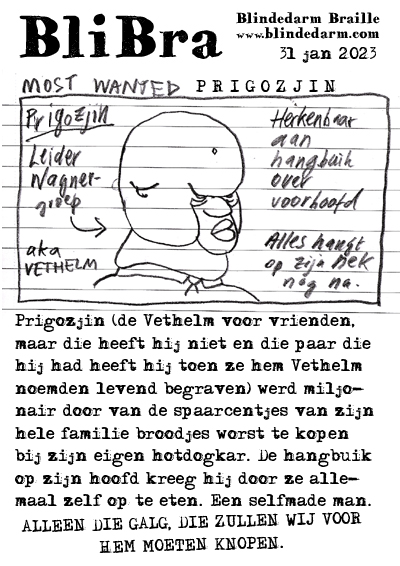 BliBra
Blindedarm Braille
www.blindedarm.com
31 jan 2023
MOST WANTED PRIGOZJIN
Prigozjin
Leider
Wagner-
groep
aka
VETHELM
Herkenbaar
aan
hangbuik
over
voorhoofd
Alles hangt
op zijn nek
nog na.
Prigozjin (de Vethelm voor vrienden,
maar die heeft hij niet en die paar die
hij had heeft hij toen ze hem Vethelm
noemden levend begraven) werd miljo-
nair door van de spaarcentjes van zijn
hele familie broodjes worst te kopen
bij zijn eigen hotdogkar. De hangbuik
op zijn hoofd kreeg hij door ze alle-
maal zelf op te eten. Een selfmade man.
ALLEEN DIE GALG, DIE ZULLEN WIJ VOOR
HEM MOETEN KNOPEN.